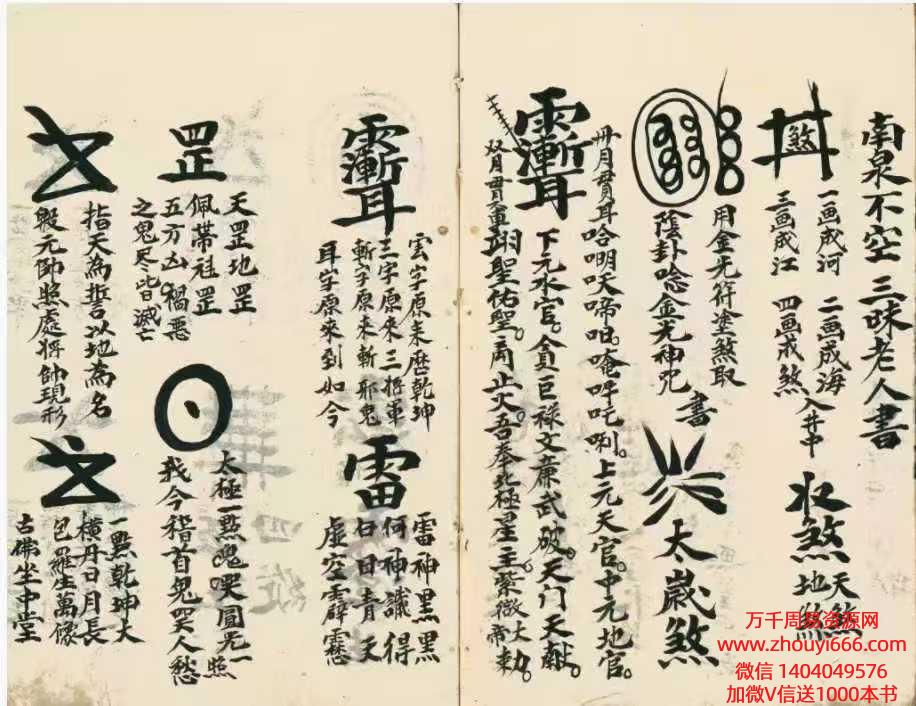 南泉不空三昧老人書
煞
一画成河 二画成海
三画成江 四画成煞
入井中
收煞
天煞
地煞
用金光符塗煞取
陰卦唸金光神咒
書
太歲煞
卅月貫耳哈唎吠啼呾。唵吽吒唎。上元天官。中元地官。
下元水官。貪巨祿文廉武破。天门天猷。
翊聖佑聖。吾奉北極星主紫微大帝勅。
雲字原來歷乾坤
三字原來三将軍
斬字原來斬邪鬼
耳字原來到如今
雷
雷神黑黑
何神識得
白日青天
虛空霹靂
罡
天罡地罡
佩帶祖罡
五方凶禍悪
之鬼尽皆滅亡
太極一點鬼哭圓光一照
我今稽首鬼哭人愁
指天為誓以地為名
殷元帅照處将帥現形
一點乾坤大
橫丹日月長
包羅生萬像
古佛坐中堂
万千周易资源网
www.zhouyi666.com
微信 1404049576
加微V信送1000本书